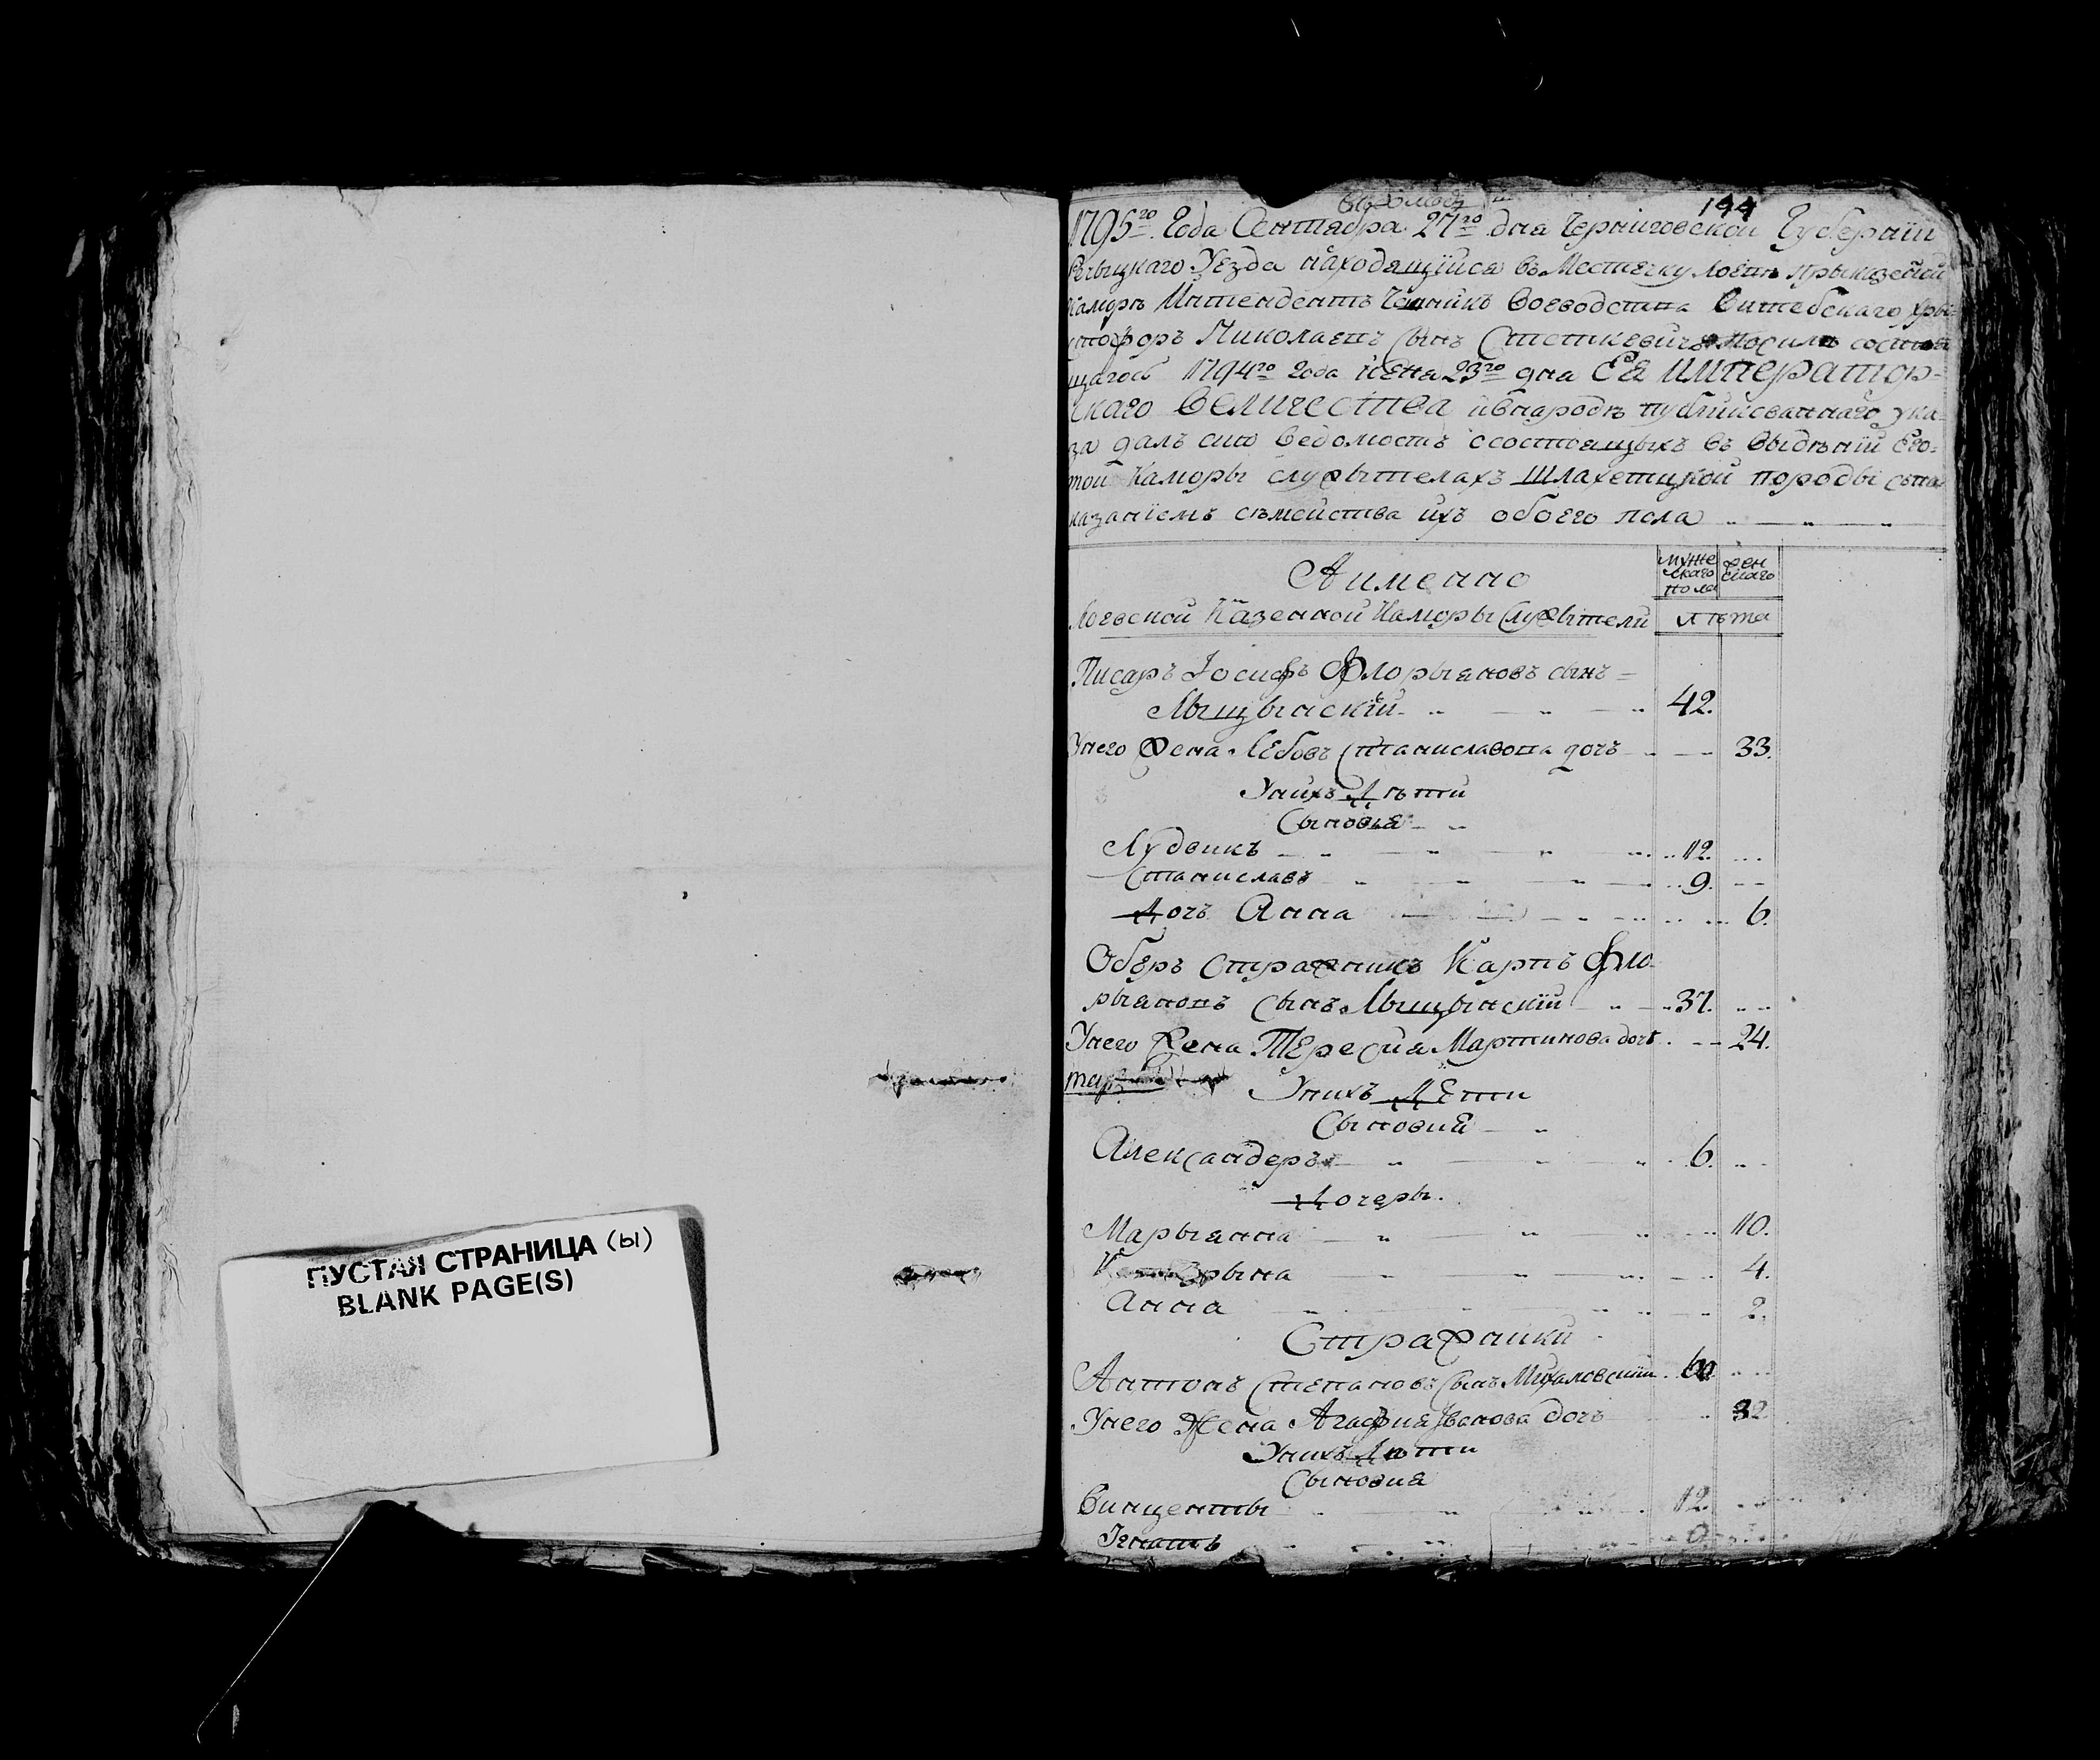 ПУСТАЯ СТРАНИЦА (Ы)
BLANK PAGE(S)
194
1795го Года Сентября 27го дня Черниговской Губернїи
Речыцкаго Уезда находящїйся въ Местечку Лоеве
Каморѣ Интендентъ Воеводства Витебскаго Хры
стофоръ Николаевъ Сынъ состоя
щагось 1794го года 23го дня Ея Император-
скаго Величества ивнародѣ публикованнаго ука
за далъ сию Ведомость осостоящыхъ въ Выдѣнїи Его
той Каморы служытелахъ Шлахетцкой породы спо
казанїемъ съмейства ихъ обоего пола
Аименно
муже
скаго
пола
жен
скаго
Лоевской Казенной Каморы Служытели
лѣта
Писаръ Іосифъ Флорыяновъ сынъ
Лыщынскїй
42.
Унего жена Стaниславова дочъ
33.
Унихъ Дѣти
Сыновья
Лудвикъ
12.
Станиславъ
9.
Дочъ Анна
6.
Оберъ Стражникъ Карпъ Фло
рыяновъ Сынъ Лыщынскїй
37.
Унего Жена Тересия Мартинова дочъ
24.
Унихъ Дети
Сыновия
Александеръ
6.
Дочеры.
Марыянна
10.
4.
Анна
2.
Стражники
Антонъ Степановъ Сынъ Михаловский
60
Унего Жена Агафия Іванова дочъ
32
Унихъ Дѣти
Сыновия
Винценты
12.
Ігнатъ